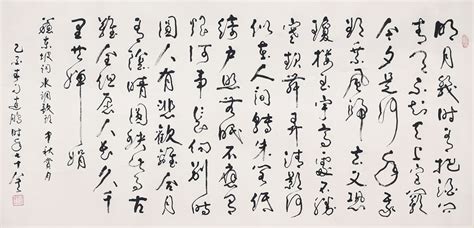 明月幾時有把酒問
青天不知天上宮闕
今夕是何年我欲
乘風歸去又恐
瓊樓玉宇高處不
勝寒起舞弄清影何
似在人間轉朱閣低
綺戶照無眠不應有
恨何事長向別時
圓人有悲歡離合月
有陰晴圓缺此事古
難全但願人長久千
里共嬋娟
蘇東坡詞水調歌頭中秋賞月